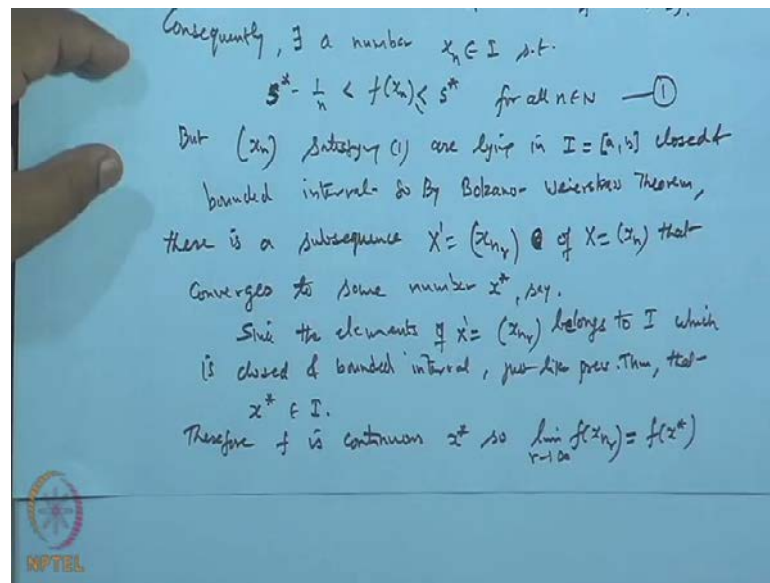 Consequently, ∃ a number xₙ ∈ I s.t.
s* - 1/n < f(xₙ) ≤ s* for all n∈N — ①
But (xₙ) satisfying (1) are lying in I = [a, b] closed &
bounded interval. So By Bolzano-Weierstrass Theorem,
there is a subsequence X' = (x_{n_r}) of X = (xₙ) that
converges to some number x*, say.
Since the elements of X' = (x_{n_r}) belongs to I which
is closed & bounded interval, just like prev. Thm, that
x* ∈ I.
Therefore f is continuous x* so lim_{r→∞} f(x_{n_r}) = f(x*)
NPTEL